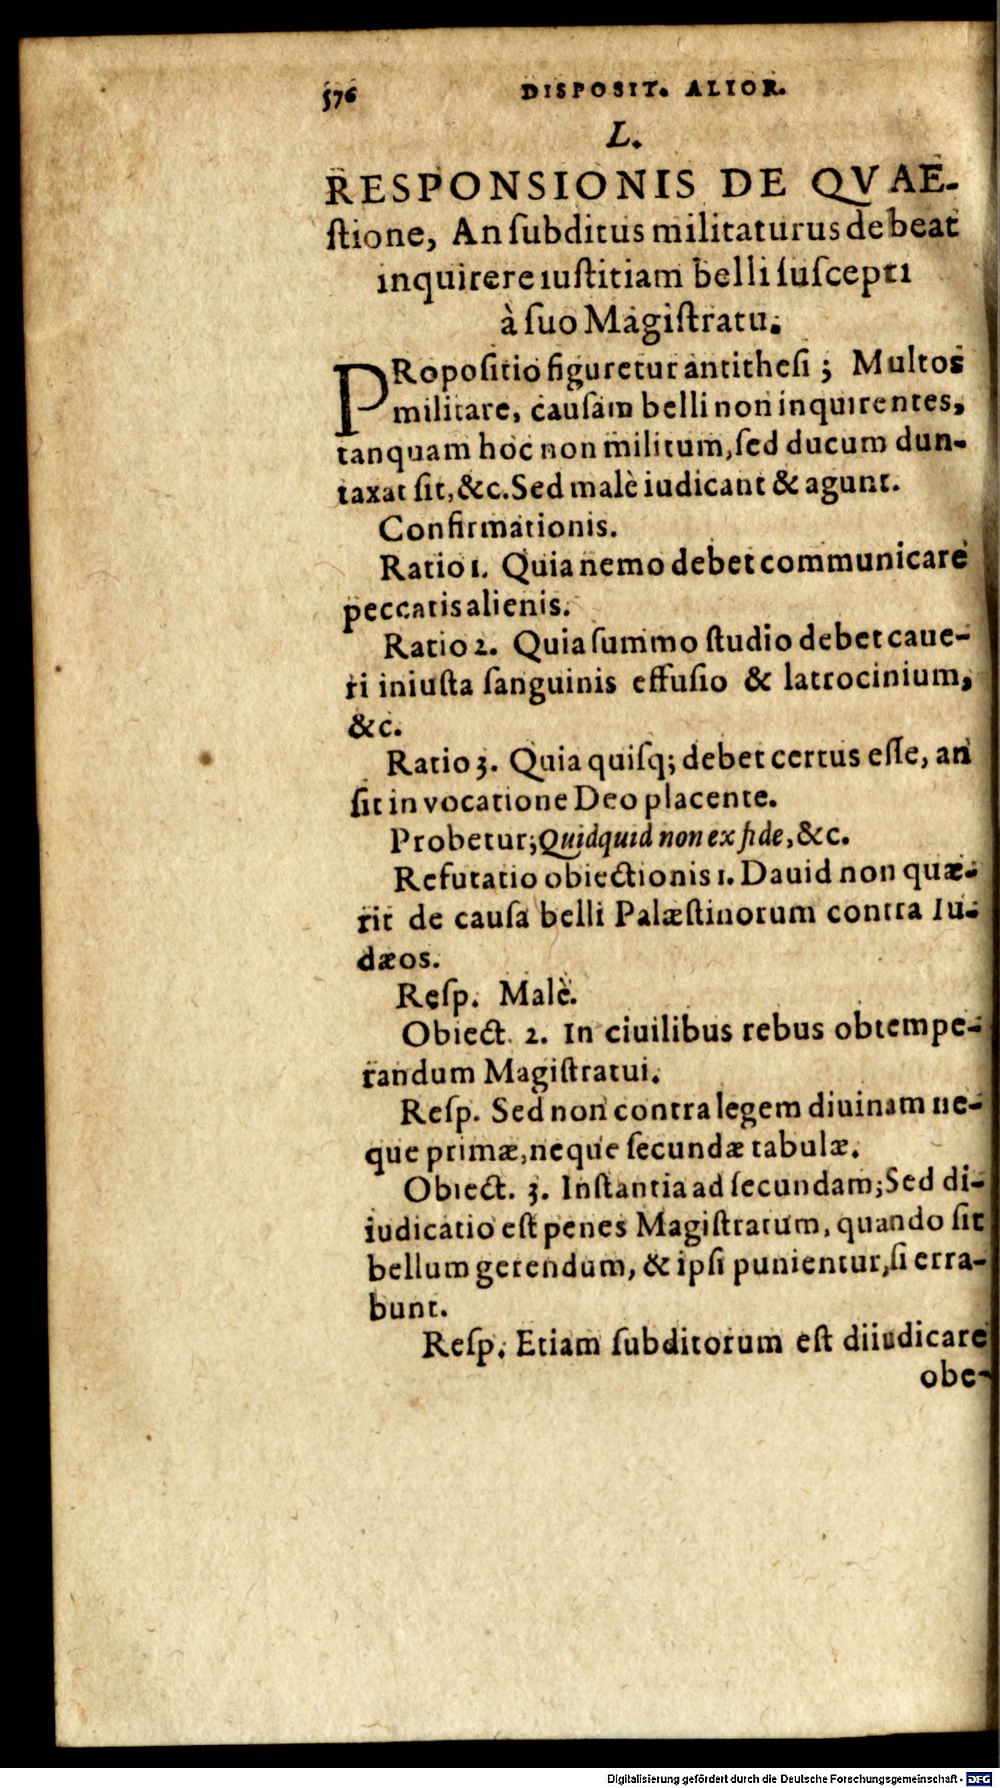 576 DISPOSIT. ALIOR.
L.
RESPONSIONIS DE QVAE-
ſtione, An ſubditus militaturus debeat
inquirere iuſtitiam belli ſuſcepti
à ſuo Magiſtratu.
PRopoſitio figuretur antitheſi; Multos
militare, cauſam belli non inquirentes,
tanquam hoc non militum, ſed ducum dun-
taxat ſit, &c. Sed malè iudicant & agunt.
Confirmationis.
Ratio 1. Quia nemo debet communicare
peccatis alienis.
Ratio 2. Quia ſummo ſtudio debet caue-
ri iniuſta ſanguinis effuſio & latrocinium,
&c.
Ratio 3. Quia quiſq; debet certus eſſe, an
ſit in vocatione Deo placente.
Probetur; Quidquid non ex fide, &c.
Refutatio obiectionis 1. Dauid non quæ-
rit de cauſa belli Palæſtinorum contra Iu-
dæos.
Reſp. Malè.
Obiect. 2. In ciuilibus rebus obtempe-
randum Magiſtratui.
Reſp. Sed non contra legem diuinam ne-
que primæ, neque ſecundæ tabulæ.
Obiect. 3. Inſtantia ad ſecundam; Sed di-
iudicatio eſt penes Magiſtratum, quando ſit
bellum gerendum, & ipſi punientur, ſi erra-
bunt.
Reſp. Etiam ſubditorum eſt diiudicare
obe-
Digitalisierung gefördert durch die Deutsche Forschungsgemeinschaft - DFG